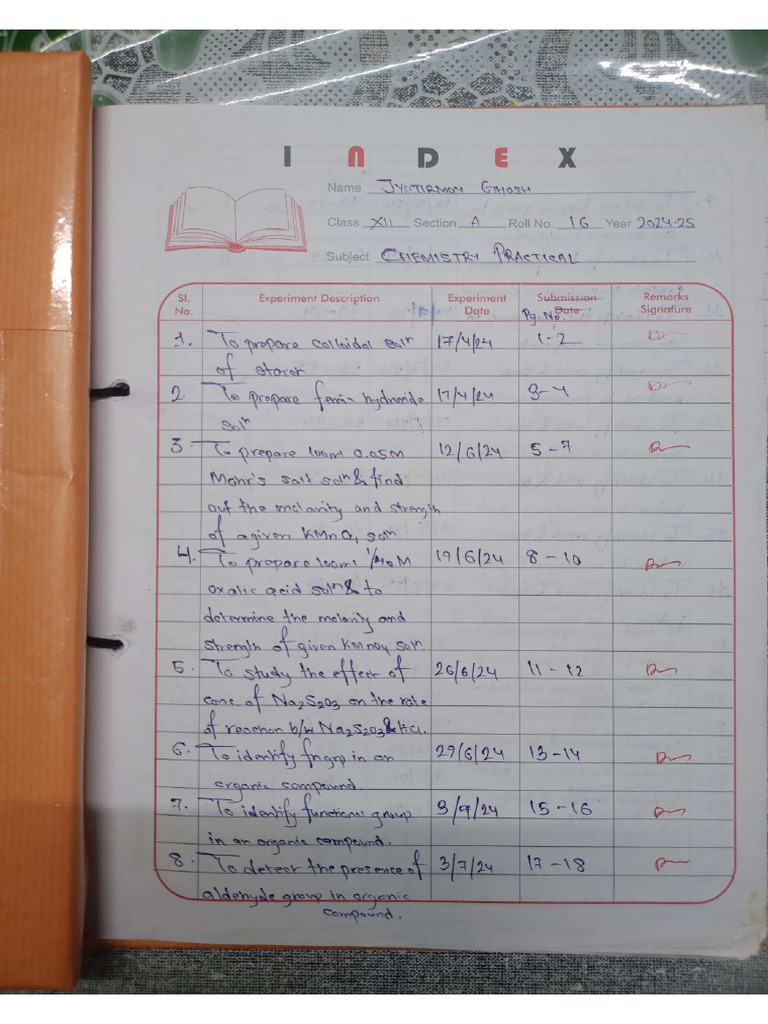 INDEX
Name JYOTIRMOY GHOSH
Class XII Section A Roll No. 16 Year 2024-25
Subject CHEMISTRY PRACTICAL
Sl. No. Experiment Description Experiment Date Submission Date Pg. No. Remarks Signature
1. To prepare colloidal soln 17/4/24 1-2
of starch
2. To prepare ferric hydroxide 17/4/24 3-4
soln
3. To prepare 100ml 0.05M 12/6/24 5-7
Mohr's salt soln & find
out the molarity and strength
of a given KMnO4 soln
4. To prepare 100ml 1/40 M 19/6/24 8-10
oxalic acid soln & to
determine the molarity and
strength of given KMnO4 soln.
5. To study the effect of 26/6/24 11-12
conc. of Na2S2O3 on the rate
of reaction b/w Na2S2O3 & HCl.
6. To identify fn grp in an 29/6/24 13-14
organic compound.
7. To identify functional group 15-16
in an organic compound.
8. To detect the presence of 3/7/24 17-18
aldehyde group in organic
compound.